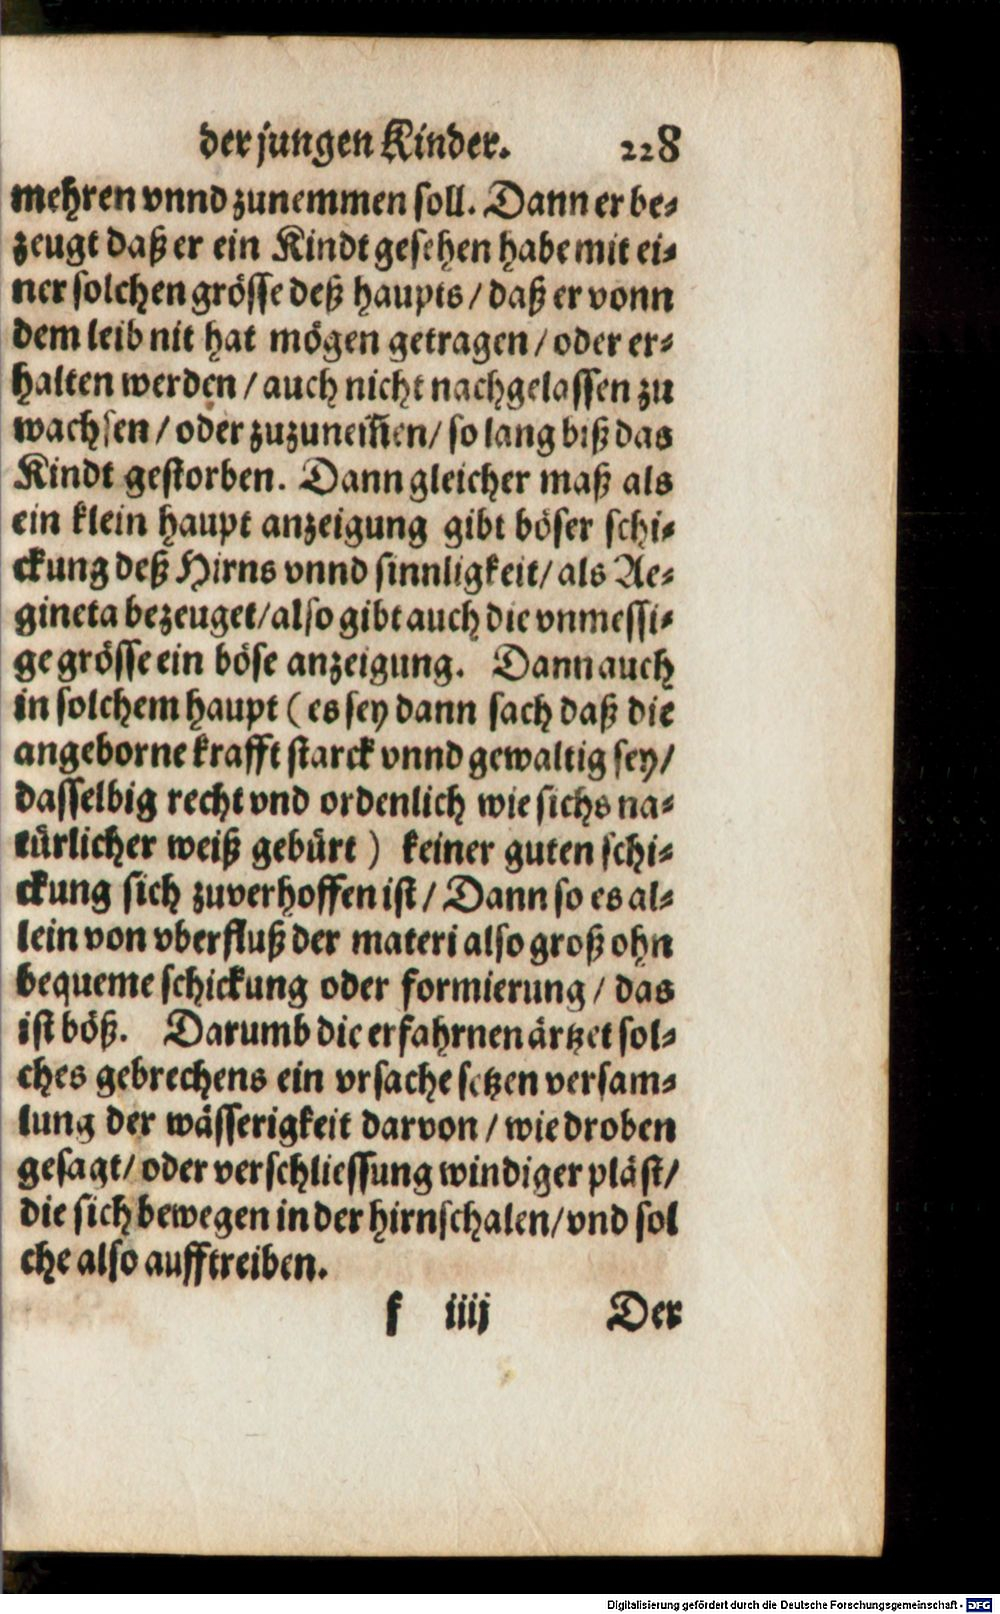 der jungen Kinder. 228
mehren vnnd zunemmen soll. Dann er be-
zeugt daß er ein Kindt gesehen habe mit ei-
ner solchen grösse deß haupts / daß er vonn
dem leib nit hat mögen getragen / oder er-
halten werden / auch nicht nachgelassen zu
wachsen / oder zuzunem̃en / so lang biß das
Kindt gestorben. Dann gleicher maß als
ein klein haupt anzeigung gibt böser schi-
ckung deß Hirns vnnd sinnligkeit / als Ae-
gineta bezeuget / also gibt auch die vnmessi-
ge grösse ein böse anzeigung. Dann auch
in solchem haupt ( es sey dann sach daß die
angeborne krafft starck vnnd gewaltig sey /
dasselbig recht vnd ordenlich wie sichs na-
türlicher weiß gebürt ) keiner guten schi-
ckung sich zuverhoffen ist / Dann so es al-
lein von vberfluß der materi also groß ohn
bequeme schickung oder formierung / das
ist böß. Darumb die erfahrnen ärtzet sol-
ches gebrechens ein vrsache setzen versam-
lung der wässerigkeit darvon / wie droben
gesagt / oder verschliessung windiger pläst /
die sich bewegen in der hirnschalen / vnd sol
che also aufftreiben.
f iiij Der
Digitalisierung gefördert durch die Deutsche Forschungsgemeinschaft - DFG